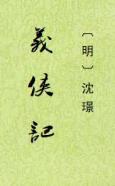 〔明〕沈璟
義俠記